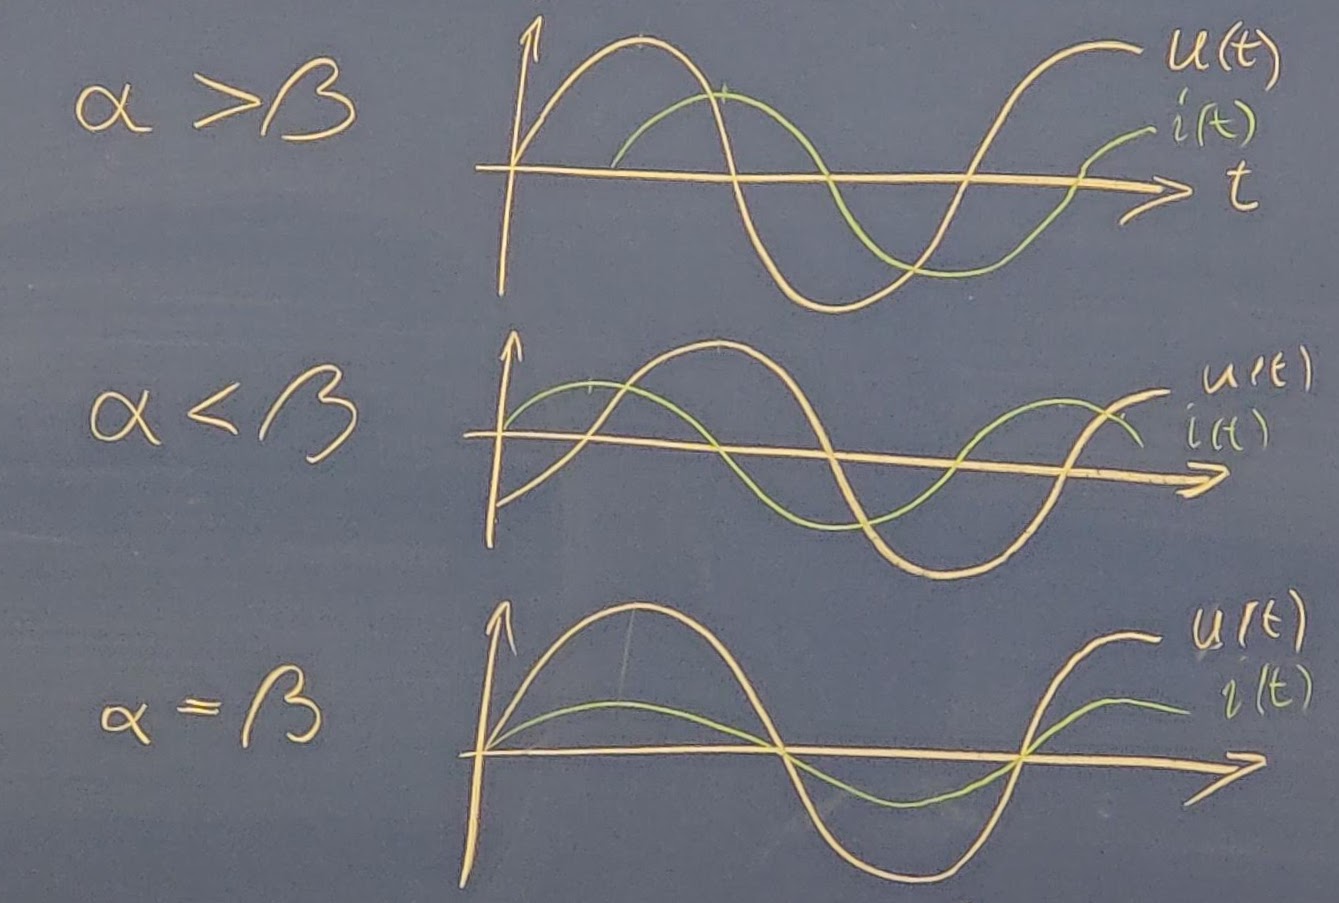 α > β
u(t)
i(t)
t
α < β
u(t)
i(t)
α = β
u(t)
i(t)